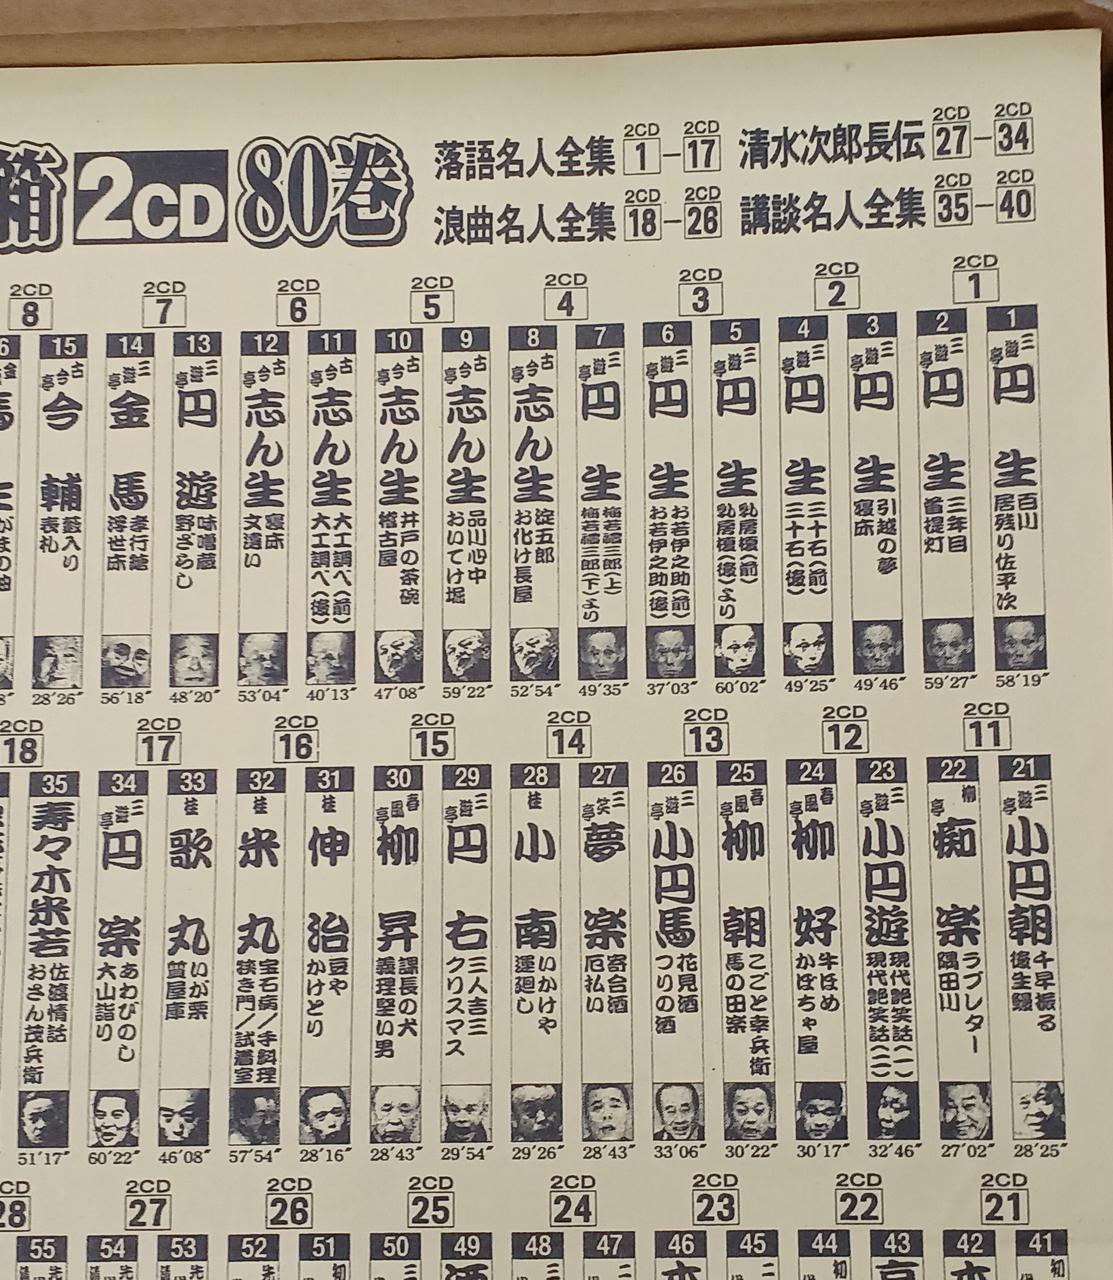 箱 2CD 80巻
落語名人全集 2CD 1−2CD 17
浪曲名人全集 2CD 18−2CD 26
清水次郎長伝 2CD 27−2CD 34
講談名人全集 2CD 35−2CD 40
2CD 1
1 三遊亭円生 百川 居残り佐平次 58′19″
2 三遊亭円生 三年目 首提灯 59′27″
2CD 2
3 三遊亭円生 引越の夢 寝床 49′46″
4 三遊亭円生 三十石(前) 三十石(後) 49′25″
2CD 3
5 三遊亭円生 乳房榎(前) 乳房榎(後)より 60′02″
6 三遊亭円生 お若伊之助(前) お若伊之助(後) 37′03″
2CD 4
7 三遊亭円生 梅若禮三郎(上) 梅若禮三郎(下)より 49′35″
8 古今亭志ん生 淀五郎 お化け長屋 52′54″
2CD 5
9 古今亭志ん生 品川心中 おいてけ堀 59′22″
10 古今亭志ん生 井戸の茶碗 稽古屋 47′08″
2CD 6
11 古今亭志ん生 大工調べ(前) 大工調べ(後) 40′13″
12 古今亭志ん生 寝床 文違い 53′04″
2CD 7
13 三遊亭円遊 味噌蔵 野ざらし 48′20″
14 三遊亭金馬 孝行糖 浮世床 56′18″
2CD 8
15 古今亭今輔 藪入り 表札 28′26″
2CD 11
21 三遊亭小円朝 千早振る 後生鰻 28′25″
22 柳亭痴楽 ラブレター 隅田川 27′02″
2CD 12
23 三遊亭小円遊 現代艶笑話(一) 現代艶笑話(二) 32′46″
24 春風亭柳好 牛ほめ かぼちゃ屋 30′17″
2CD 13
25 春風亭柳朝 こごと幸兵衛 馬の田楽 30′22″
26 三遊亭小円馬 花見酒 つりの酒 33′06″
2CD 14
27 三笑亭夢楽 寄合酒 厄払い 28′43″
28 桂小南 いかけや 運廻し 29′26″
2CD 15
29 三遊亭円右 三人吉三 クリスマス 29′54″
30 春風亭柳昇 課長の犬 義理堅い男 28′43″
2CD 16
31 桂伸治 豆や かけとり 28′16″
32 桂米丸 宝石病/手料理 狭き門/試着室 57′54″
2CD 17
33 桂歌丸 いが栗 質屋庫 46′08″
34 三遊亭円楽 あわびのし 大山詣り 60′22″
2CD 18
35 寿々木米若 佐渡情話 おさん茂兵衛 51′17″
2CD 21
41
42
2CD 22
43
44
2CD 23
45
46
2CD 24
47
48
2CD 25
49
50
2CD 26
51
52
2CD 27
53
54
28
55